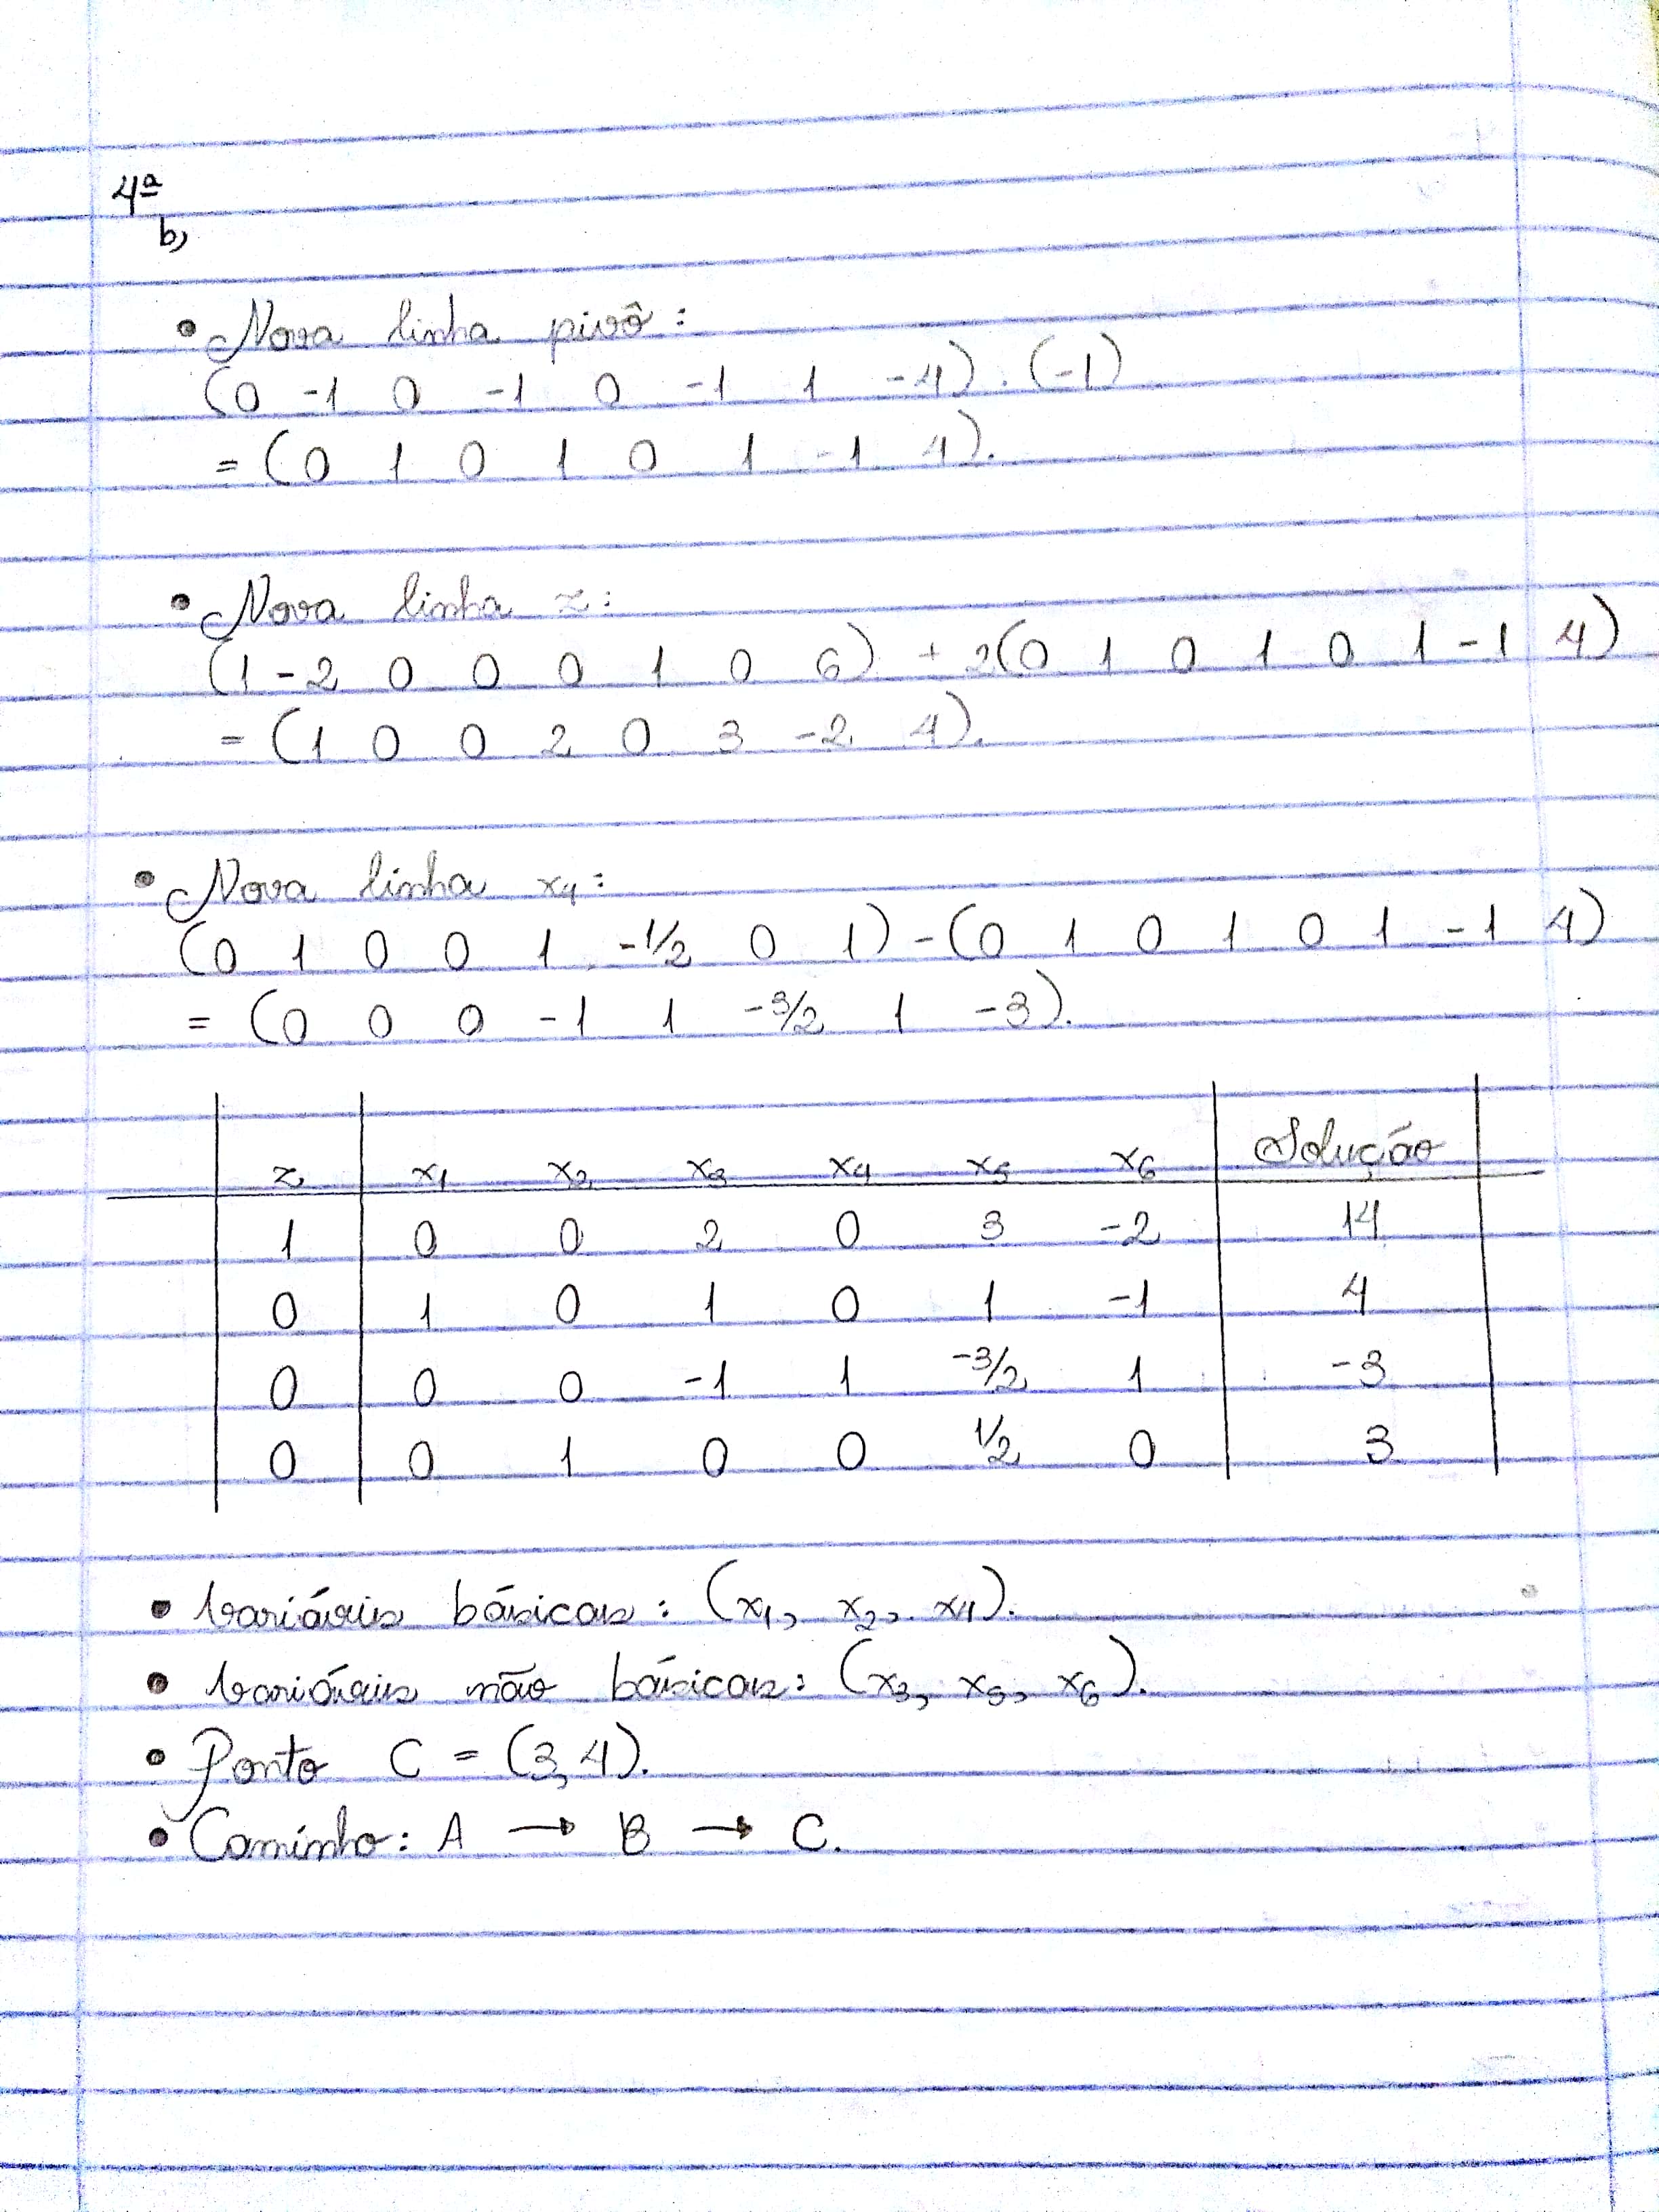 4ª
b)
• Nova linha pivô:
(0 -1 0 -1 0 -1 1 -4) . (-1)
= (0 1 0 1 0 1 -1 4).
• Nova linha z:
(1 -2 0 0 0 1 0 6) + 2(0 1 0 1 0 1 -1 4)
= (1 0 0 2 0 3 -2 4).
• Nova linha x₄:
(0 1 0 0 1 -1/2 0 1) - (0 1 0 1 0 1 -1 4)
= (0 0 0 -1 1 -3/2 1 -3).
z x₁ x₂ x₃ x₄ x₅ x₆ Solução
1 0 0 2 0 3 -2 14
0 1 0 1 0 1 -1 4
0 0 0 -1 1 -3/2 1 -3
0 0 1 0 0 1/2 0 3
• Variáveis básicas: (x₁, x₂, x₄).
• Variáveis não básicas: (x₃, x₅, x₆).
• Ponto C = (3, 4).
• Caminho: A → B → C.